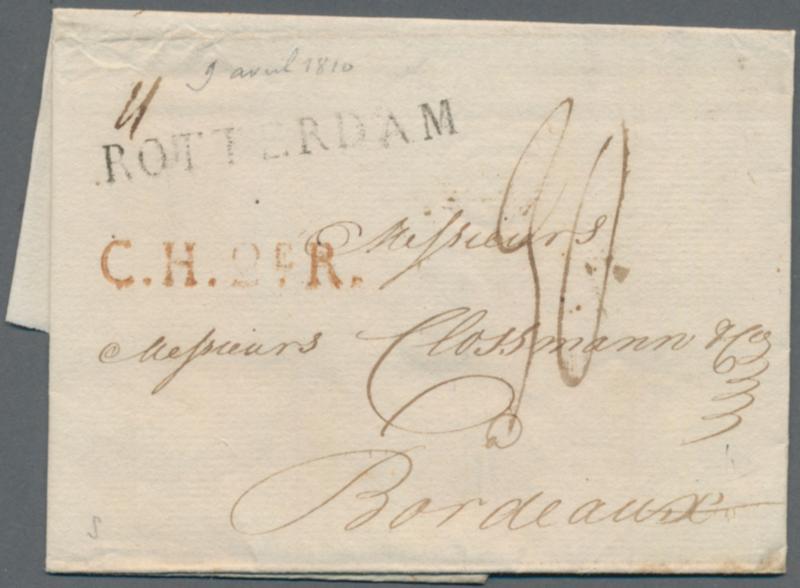 9 avril 1810
ROTTERDAM
Messieurs
C.H. 2e R.
Messieurs Clossmann & Co
a
Bordeaux